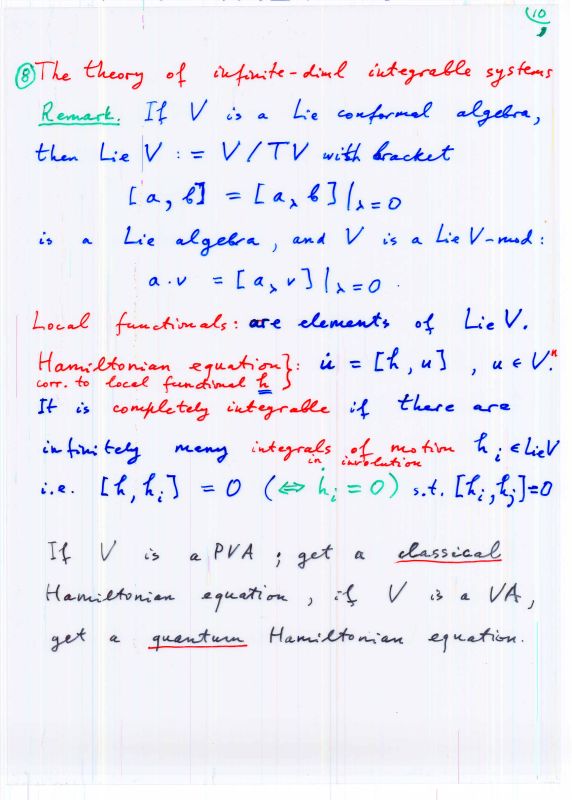 10
⑧ The theory of infinite-diml integrable systems
Remark. If V is a Lie conformal algebra,
then Lie V := V/TV with bracket
[a, b] = [a_λ b]|_λ=0
is a Lie algebra, and V is a Lie V-mod:
a·v = [a_λ v]|_λ=0.
Local functionals: are elements of Lie V.
Hamiltonian equation}: u̇ = [h, u], u ∈ V.
corr. to local functional h
It is completely integrable if there are
infinitely many integrals of motion h_i ∈ Lie V
in involution
i.e. [h, h_i] = 0 (⇔ ḣ_i = 0) s.t. [h_i, h_j]=0
If V is a PVA; get a classical
Hamiltonian equation, if V is a VA,
get a quantum Hamiltonian equation.